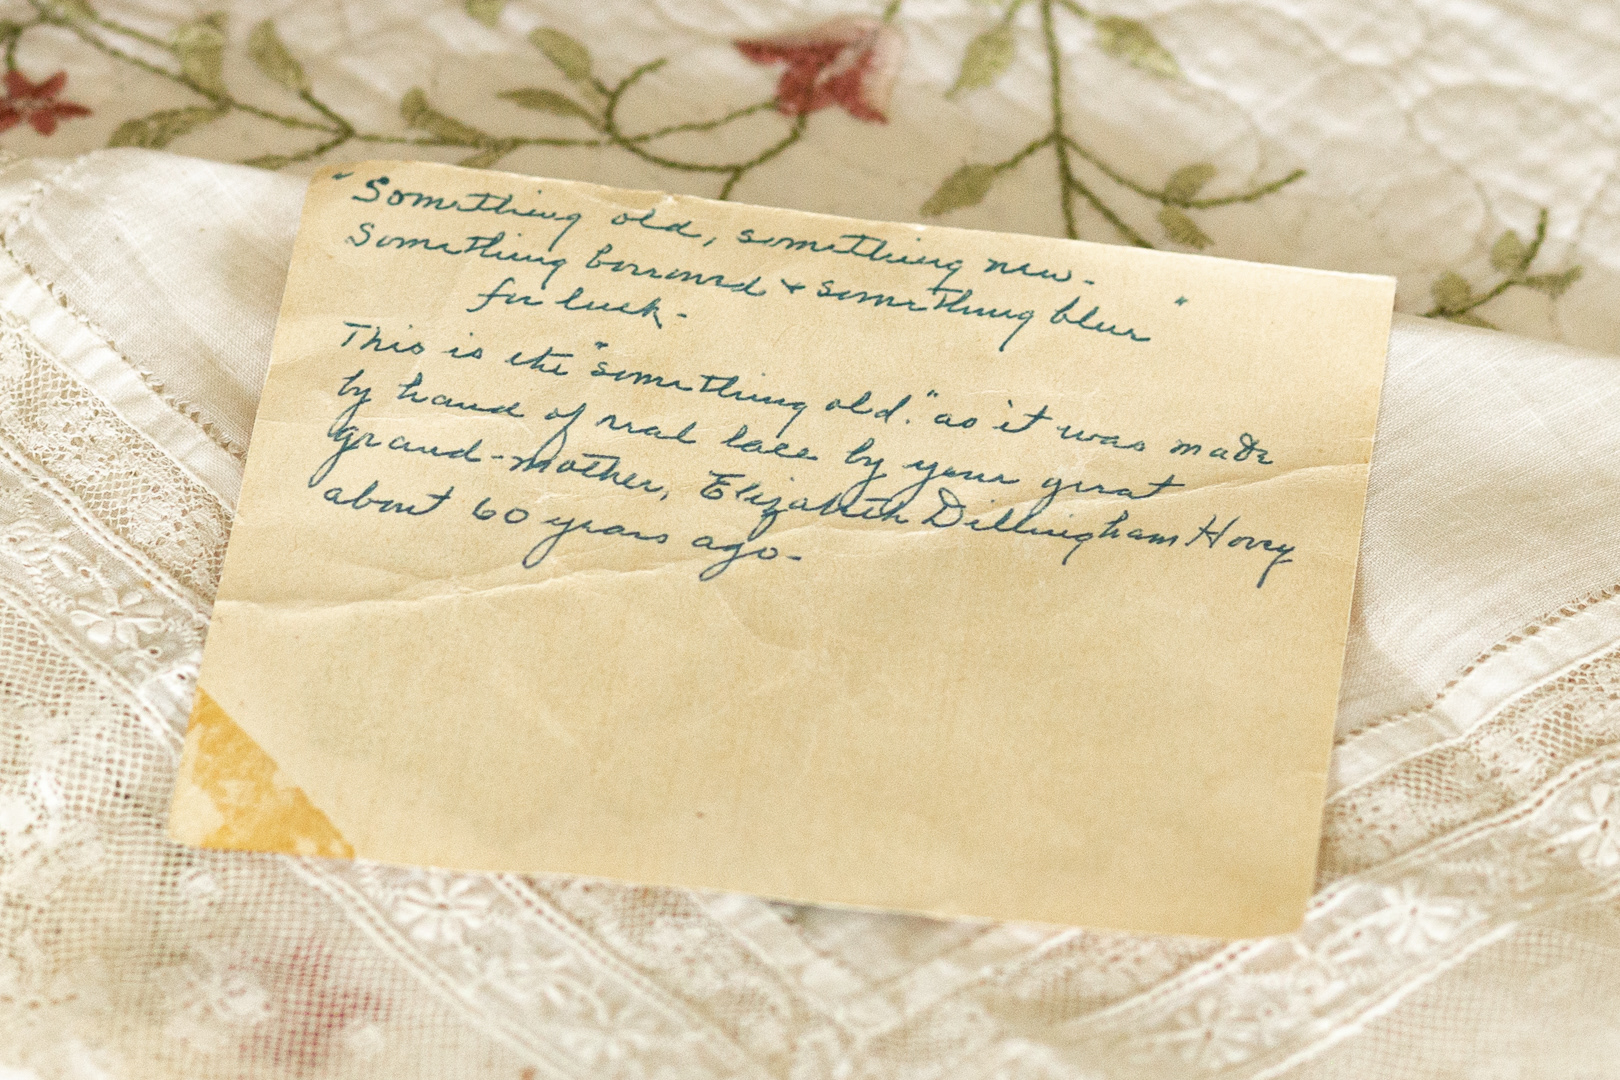 "Something old, something new-
Something borrowed & something blue"
for luck-
This is the "something old." as it was made
by hand of real lace by your great
grand-mother, Elizabeth Dillingham Hovey
about 60 years ago-